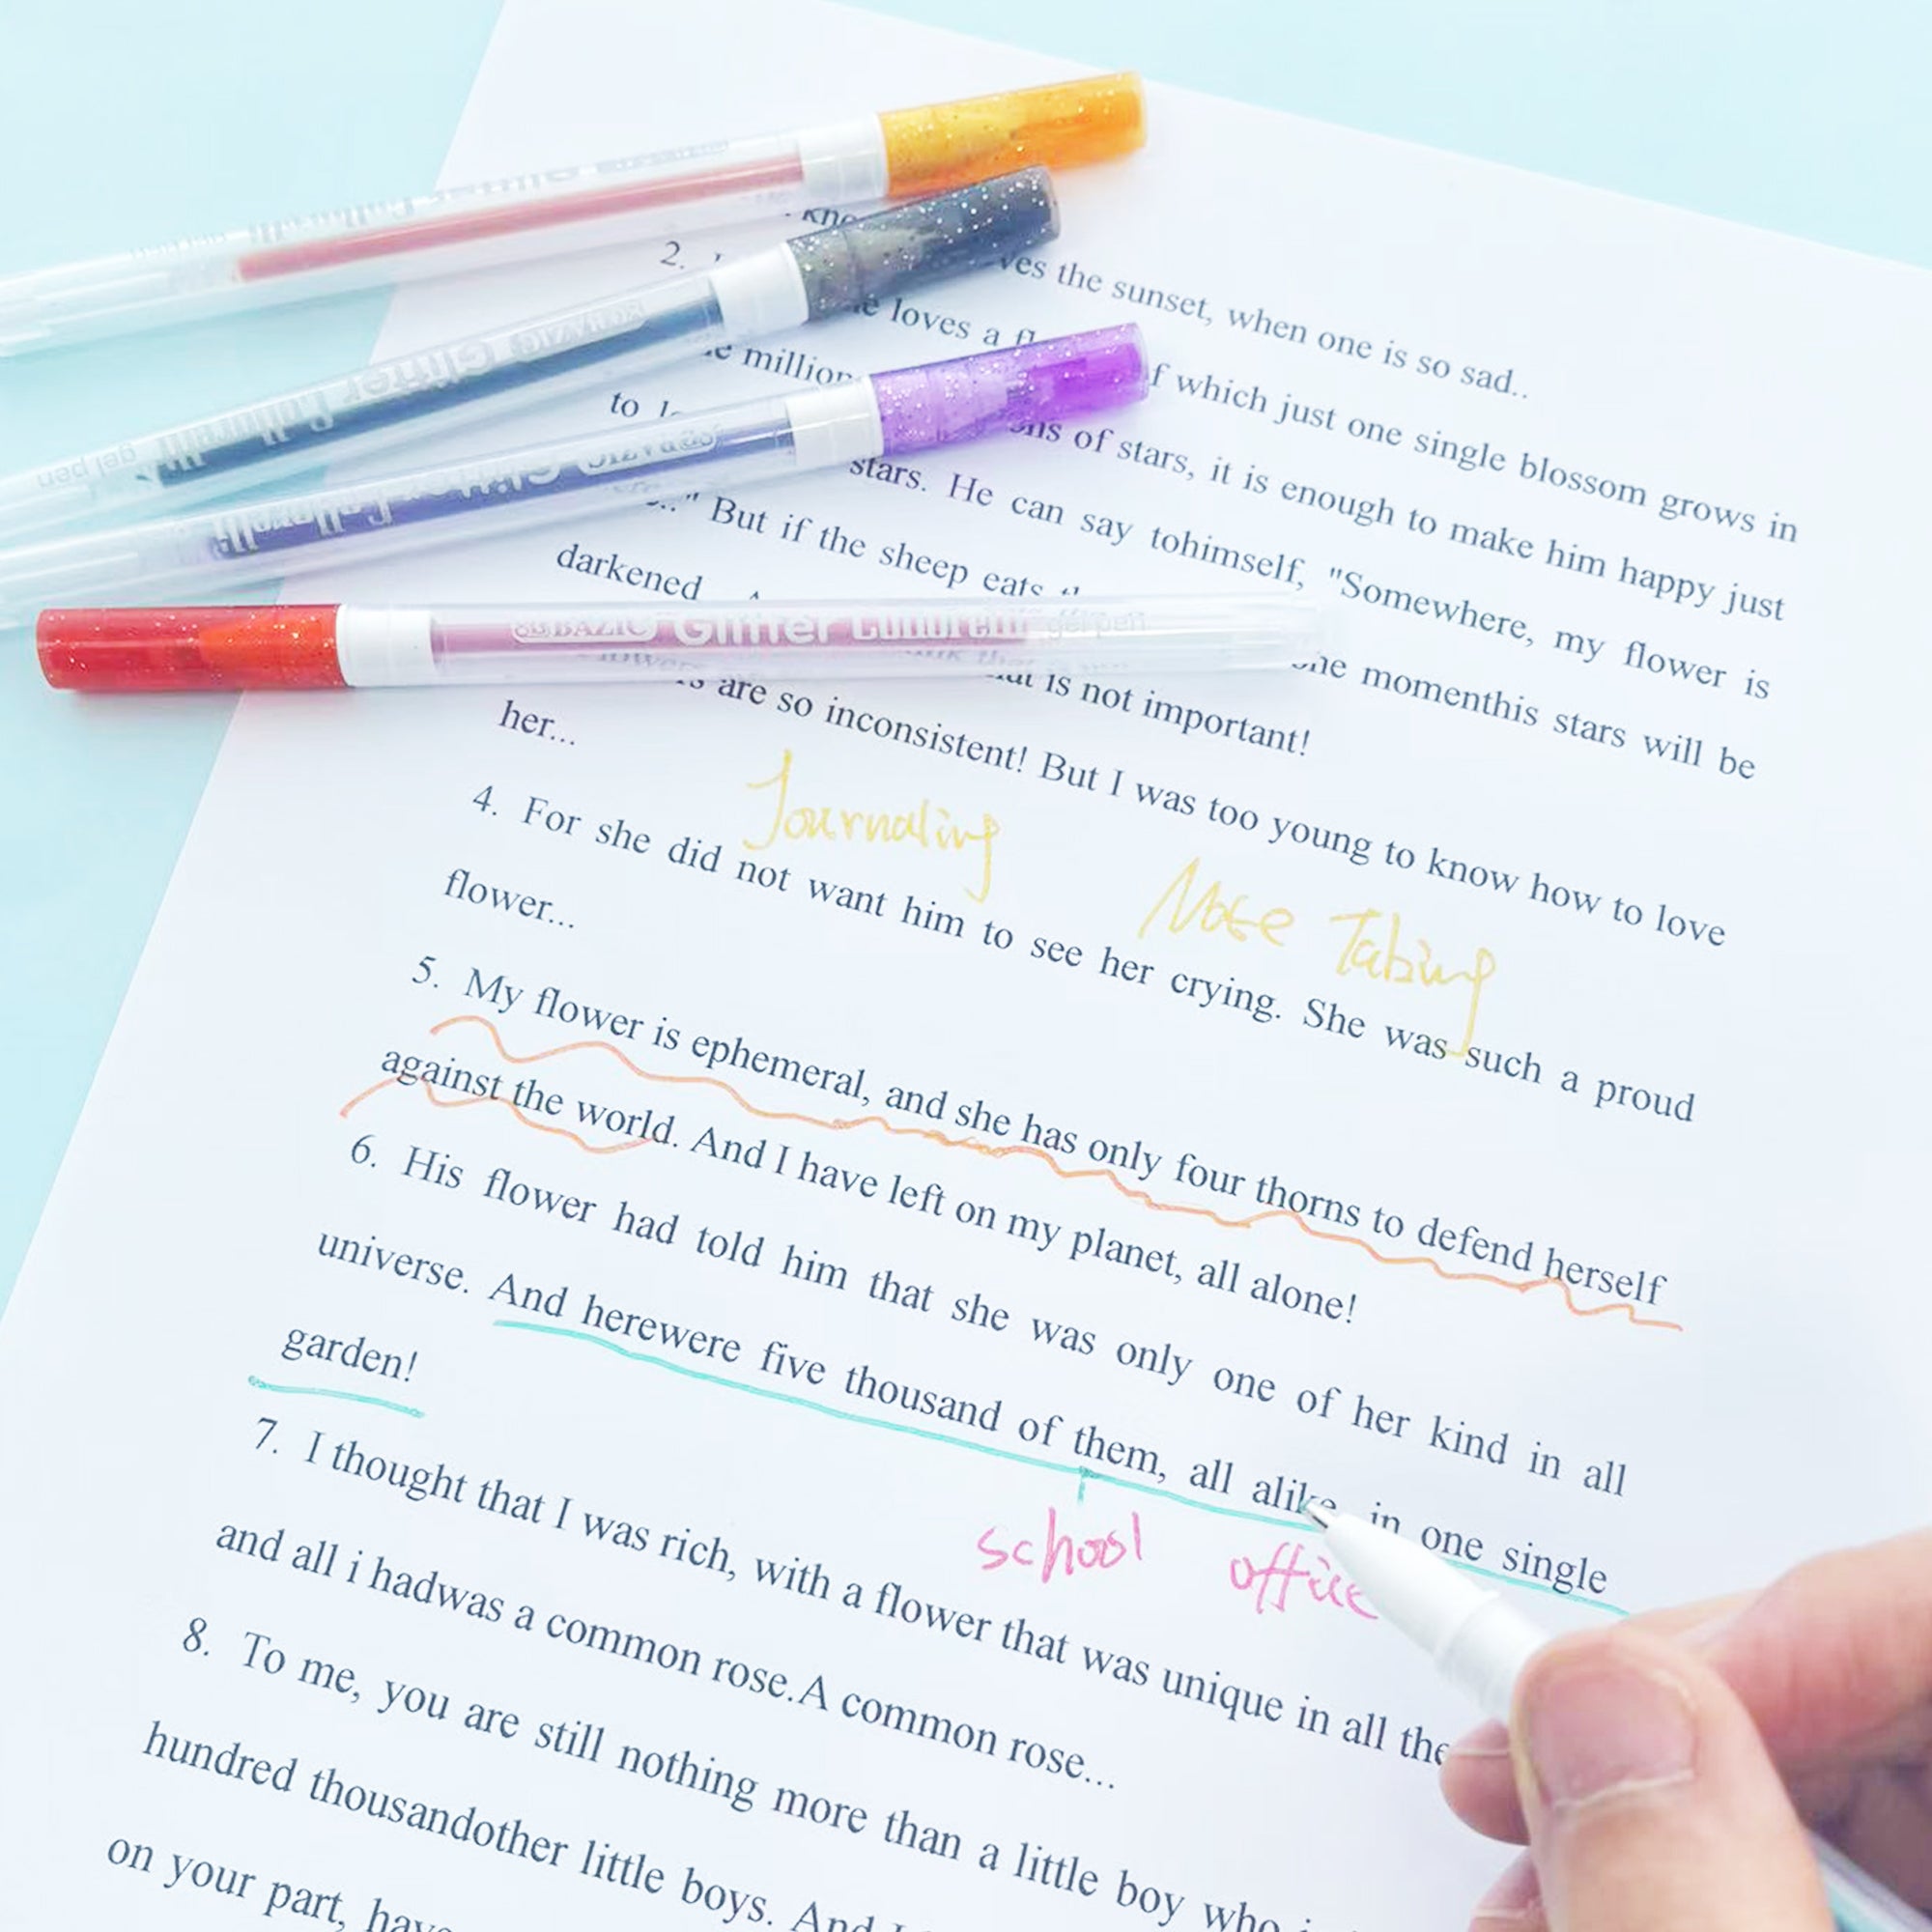 2.
ves the sunset, when one is so sad..
loves a f which just one single blossom grows in
million ns of stars, it is enough to make him happy just
to stars. He can say tohimself, "Somewhere, my flower is
.." But if the sheep eats one momenthis stars will be
darkened is not important!
are so inconsistent! But I was too young to know how to love
her...
Journaling
4. For she did not want him to see her crying. She was such a proud
flower...
5. My flower is ephemeral, and she has only four thorns to defend herself
against the world. And I have left on my planet, all alone!
6. His flower had told him that she was only one of her kind in all
universe. And herewere five thousand of them, all alike, in one single
garden!
school office
7. I thought that I was rich, with a flower that was unique in all the
and all i hadwas a common rose.A common rose...
8. To me, you are still nothing more than a little boy who
hundred thousandother little boys. And I
on your part, have
BAZIC Glitter Collorelli gel pen
BAZIC Glitter Collorelli gel pen
BAZIC Glitter Collorelli
Glitter Collorelli